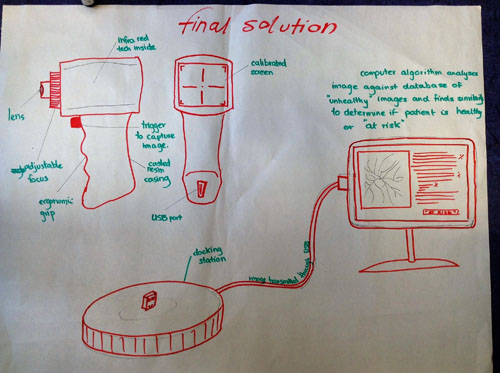 final solution
infra red
tech inside
lens
adjustable
focus
ergonomic
grip
trigger
to capture
image.
casted
resin
casing
calibrated
screen
USB port
computer algorithm analyses
image against database of
"unhealthy" images and finds similarity
to determine if patient is healthy
or "at risk"
AT RISK
docking
station
image transmitted through USB